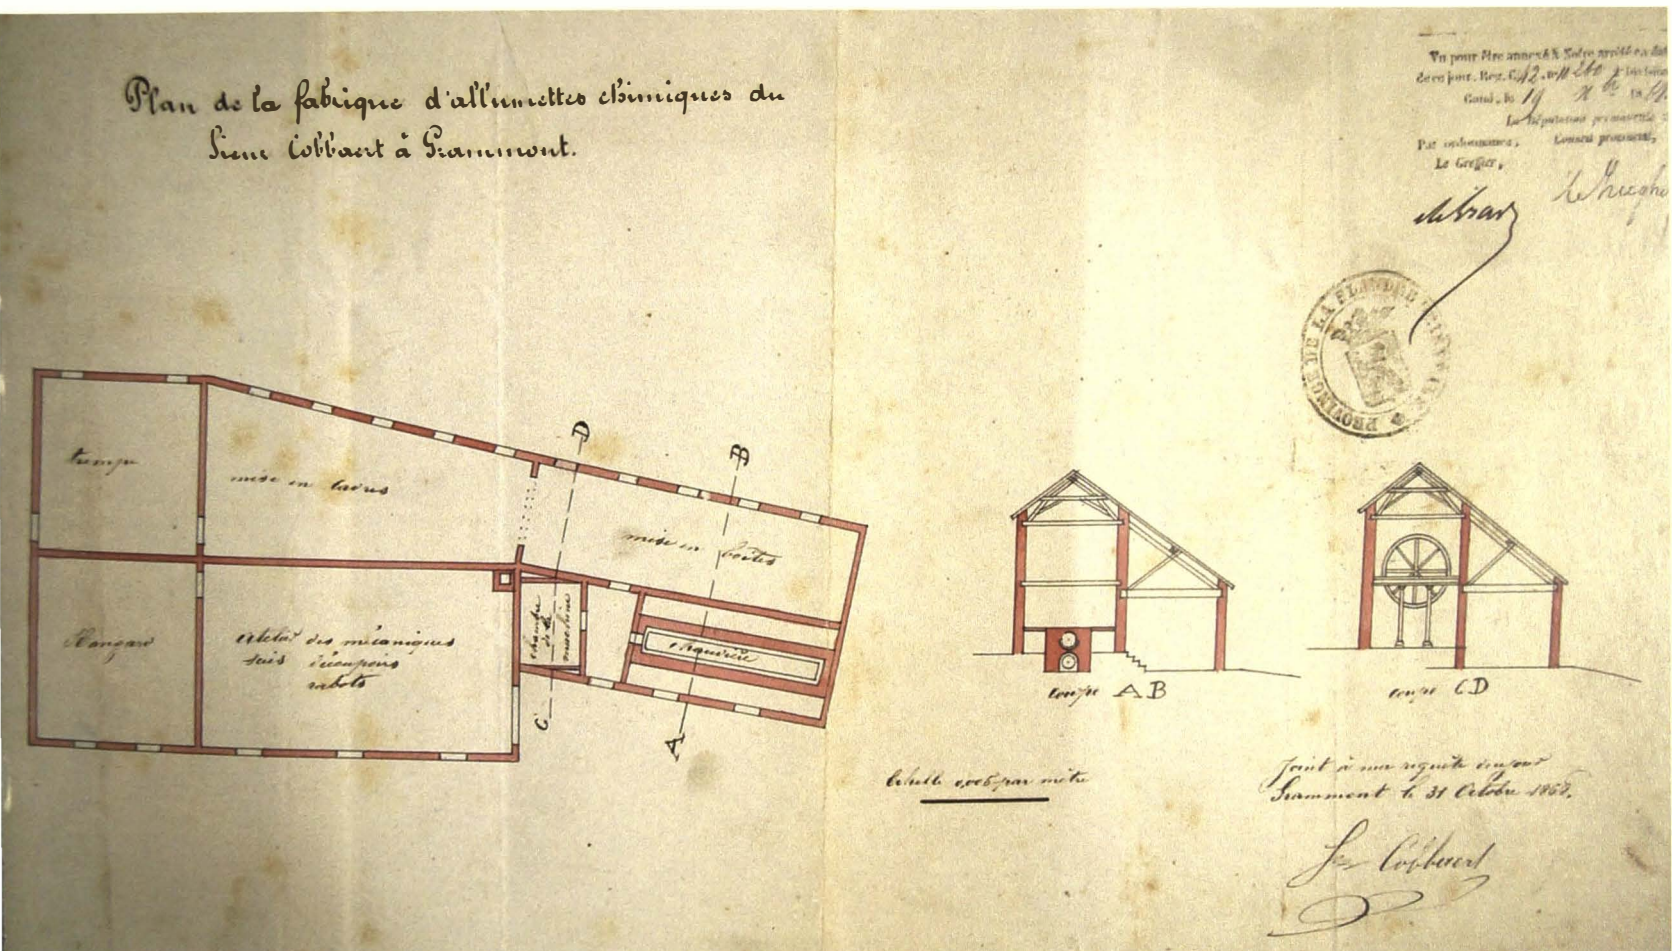 Plan de la fabrique d'allumettes chimiques du
Sieur Cobbaert à Grammont.
Vu pour être annexé à Notre arrêté en date
de ce jour.
Gand, le 19
La Députation permanente
Par ordonnance, Conseil provincial,
Le Greffier,
PROVINCE DE LA FLANDRE
trempe
mise en cadres
D
B
mise en boîtes
Hangard
atelier des mécaniques
scies découpoirs
rabots
chambre
de la
machine
chaudière
C
A
coupe AB
coupe CD
Echelle 0,005 par mètre
Joint à ma requête de ce jour
Grammont le 31 Octobre 1868.
Cobbaert